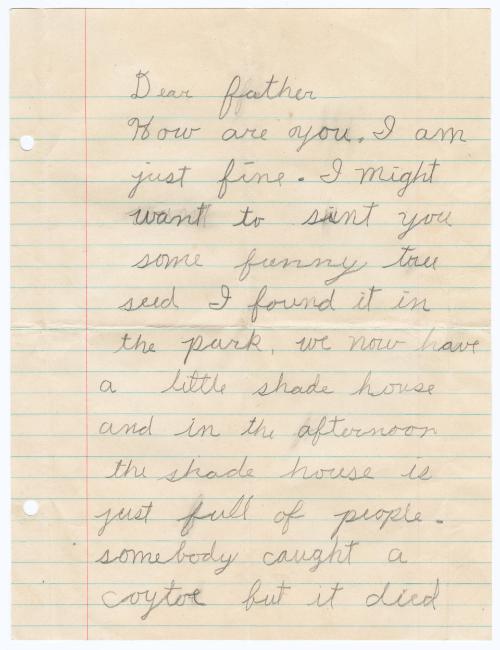 Dear father
How are you. I am
just fine. I might
want to sint you
some funny tree
seed I found it in
the park, we now have
a little shade house
and in the afternoon
the shade house is
just full of people.
somebody caught a
coytoe but it died